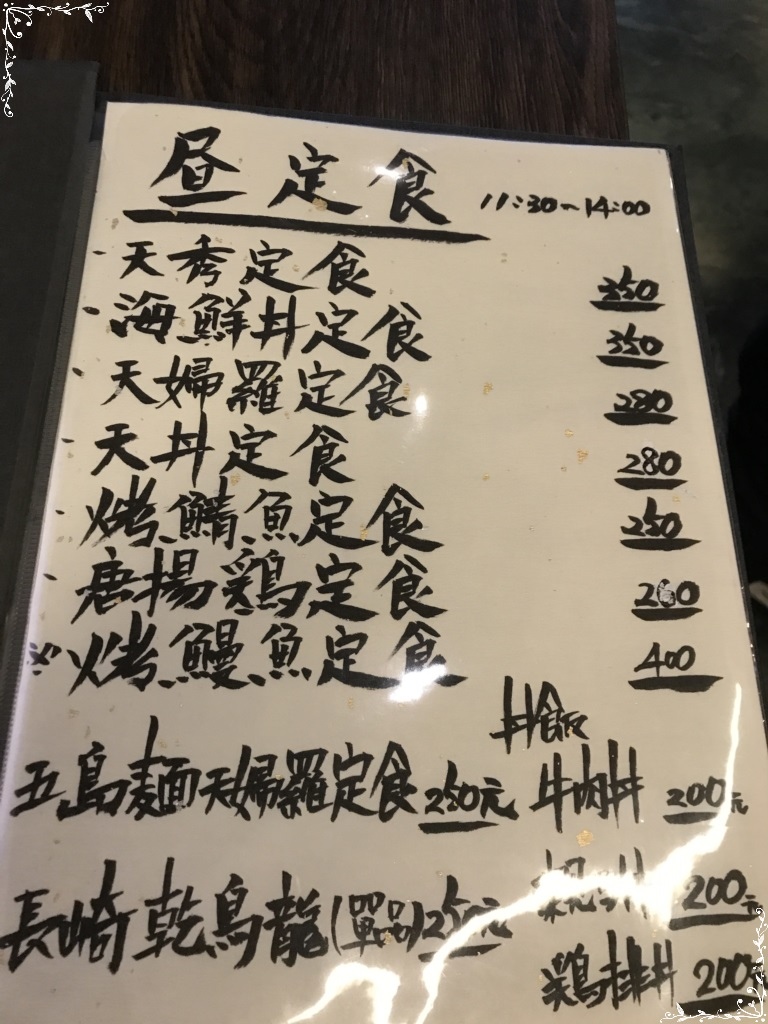 昼定食 11:30~14:00
天秀定食 350
海鮮丼定食 350
天婦羅定食 280
天丼定食 280
烤鯖魚定食 250
唐揚鶏定食 260
※烤鰻魚定食 400
丼飯
五島麵天婦羅定食 250元
牛肉丼 200元
長崎乾烏龍(單品)250元
親子丼 200元
鶏排丼 200元